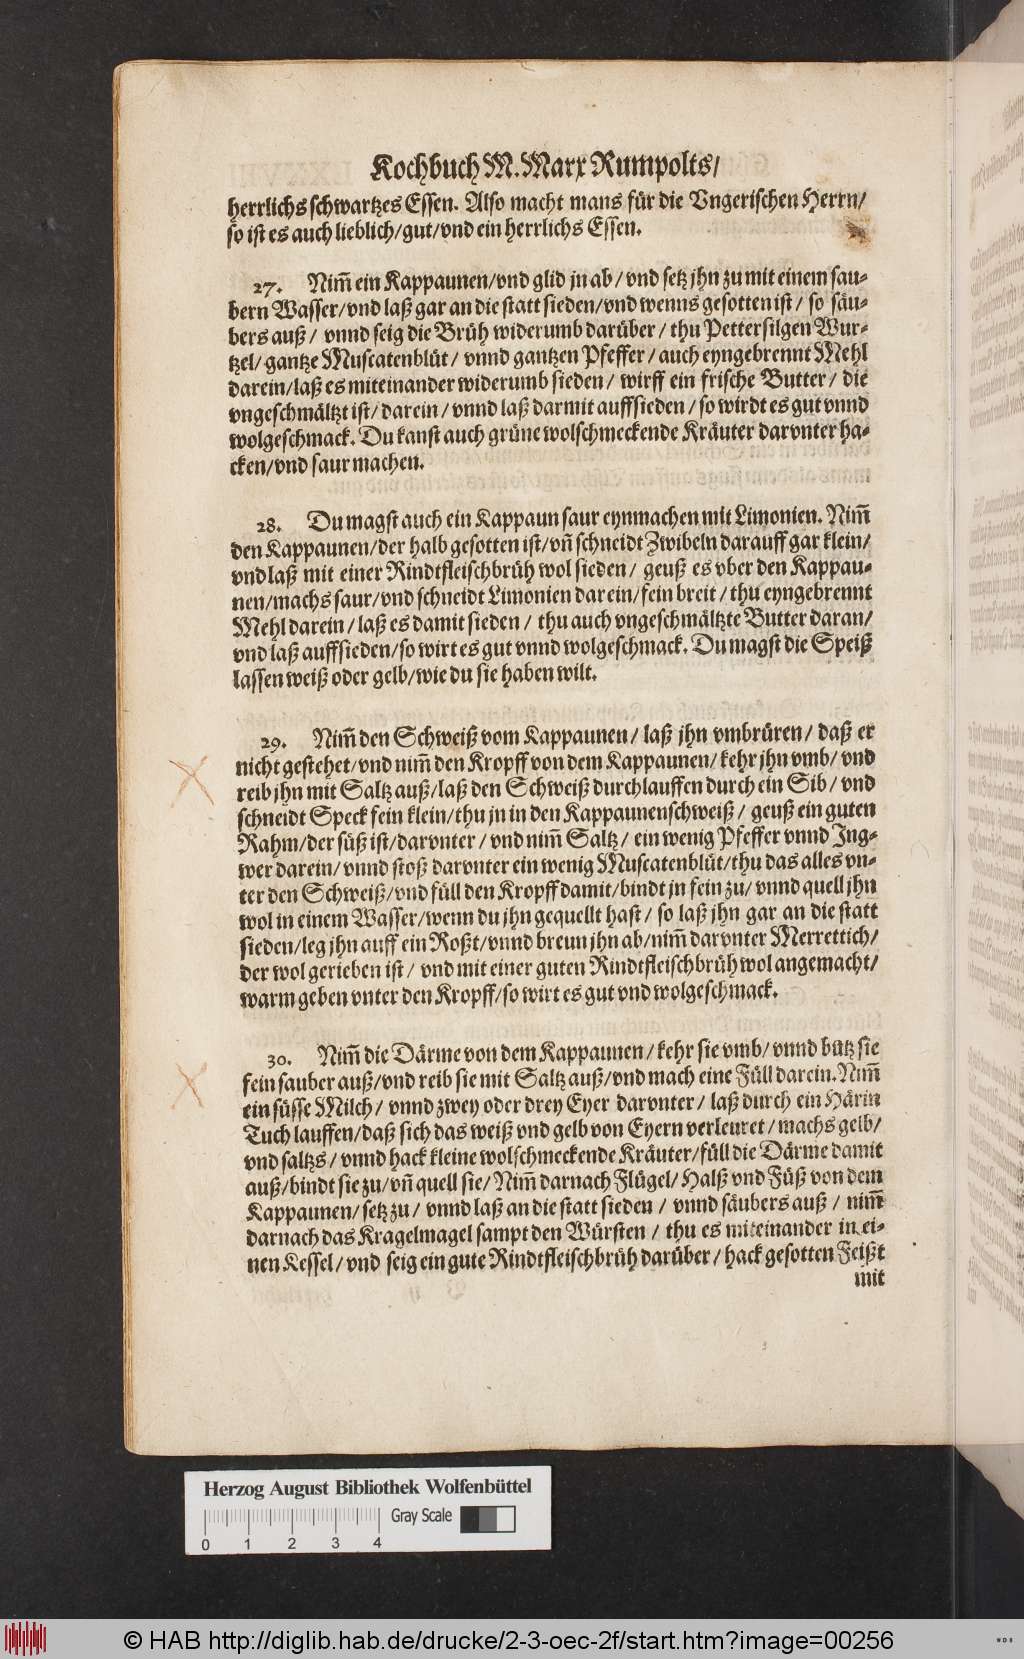 Kochbuch M. Marx Rumpolts/
herrlichs schwartzes Essen. Also macht mans für die Vngerischen Herrn/
so ist es auch lieblich/gut/vnd ein herrlichs Essen.
27. Nim̃ ein Kappaunen/vnd glid jn ab/ vnd setz jhn zu mit einem sau-
bern Wasser/vnd laß gar an die statt sieden/vnd wenns gesotten ist/ so säu-
bers auß/ vnnd seig die Brüh widerumb darüber/ thu Pettersilgen Wur-
tzel/ gantze Muscatenblüt/ vnnd gantzen Pfeffer/ auch eyngebrennt Mehl
darein/laß es miteinander widerumb sieden/ wirff ein frische Butter/ die
vngeschmältzt ist/ darein/ vnnd laß darmit auffsieden/ so wirdt es gut vnnd
wolgeschmack. Du kanst auch grüne wolschmeckende Kräuter darvnter ha-
cken/vnd saur machen.
28. Du magst auch ein Kappaun saur eynmachen mit Limonien. Nim̃
den Kappaunen/der halb gesotten ist/vñ schneidt Zwibeln darauff gar klein/
vnd laß mit einer Rindtfleischbrüh wol sieden/ geuß es vber den Kappau-
nen/machs saur/vnd schneidt Limonien darein/fein breit/ thu eyngebrennt
Mehl darein/ laß es damit sieden/ thu auch vngeschmältzte Butter daran/
vnd laß auffsieden/so wirt es gut vnnd wolgeschmack. Du magst die Speiß
lassen weiß oder gelb/wie du sie haben wilt.
29. Nim̃ den Schweiß vom Kappaunen/ laß jhn vmbrüren/ daß er
nicht gestehet/vnd nim̃ den Kropff von dem Kappaunen/ kehr jhn vmb/ vnd
reib jhn mit Saltz auß/laß den Schweiß durchlauffen durch ein Sib/ vnd
schneidt Speck fein klein/thu jn in den Kappaunenschweiß/ geuß ein guten
Rahm/der süß ist/darvnter/ vnd nim̃ Saltz/ ein wenig Pfeffer vnnd Ing-
wer darein/ vnnd stoß darvnter ein wenig Muscatenblüt/thu das alles vn-
ter den Schweiß/vnd füll den Kropff damit/bindt jn fein zu/ vnnd quell jhn
wol in einem Wasser/wenn du jhn gequellt hast/ so laß jhn gar an die statt
sieden/leg jhn auff ein Roßt/vnnd breun jhn ab/nim̃ darvnter Merrettich/
der wol gerieben ist/ vnd mit einer guten Rindtfleischbrüh wol angemacht/
warm geben vnter den Kropff/so wirt es gut vnd wolgeschmack.
30. Nim̃ die Därme von dem Kappaunen/ kehr sie vmb/ vnnd butz sie
fein sauber auß/vnd reib sie mit Saltz auß/vnd mach eine Füll darein. Nim̃
ein süsse Milch/ vnnd zwey oder drey Eyer darvnter/ laß durch ein Härin
Tuch lauffen/daß sich das weiß vnd gelb von Eyern verleuret/ machs gelb/
vnd saltzs/ vnnd hack kleine wolschmeckende Kräuter/füll die Därme damit
auß/bindt sie zu/vñ quell sie/ Nim̃ darnach Flügel/ Halß vnd Füß von dem
Kappaunen/ setz zu/ vnnd laß an die statt sieden/ vnnd säubers auß/ nim̃
darnach das Kragelmagel sampt den Würsten/ thu es miteinander in ei-
nen Kessel/vnd seig ein gute Rindtfleischbrüh darüber/ hack gesotten Feißt
mit
Herzog August Bibliothek Wolfenbüttel
Gray Scale
0 1 2 3 4
© HAB http://diglib.hab.de/drucke/2-3-oec-2f/start.htm?image=00256